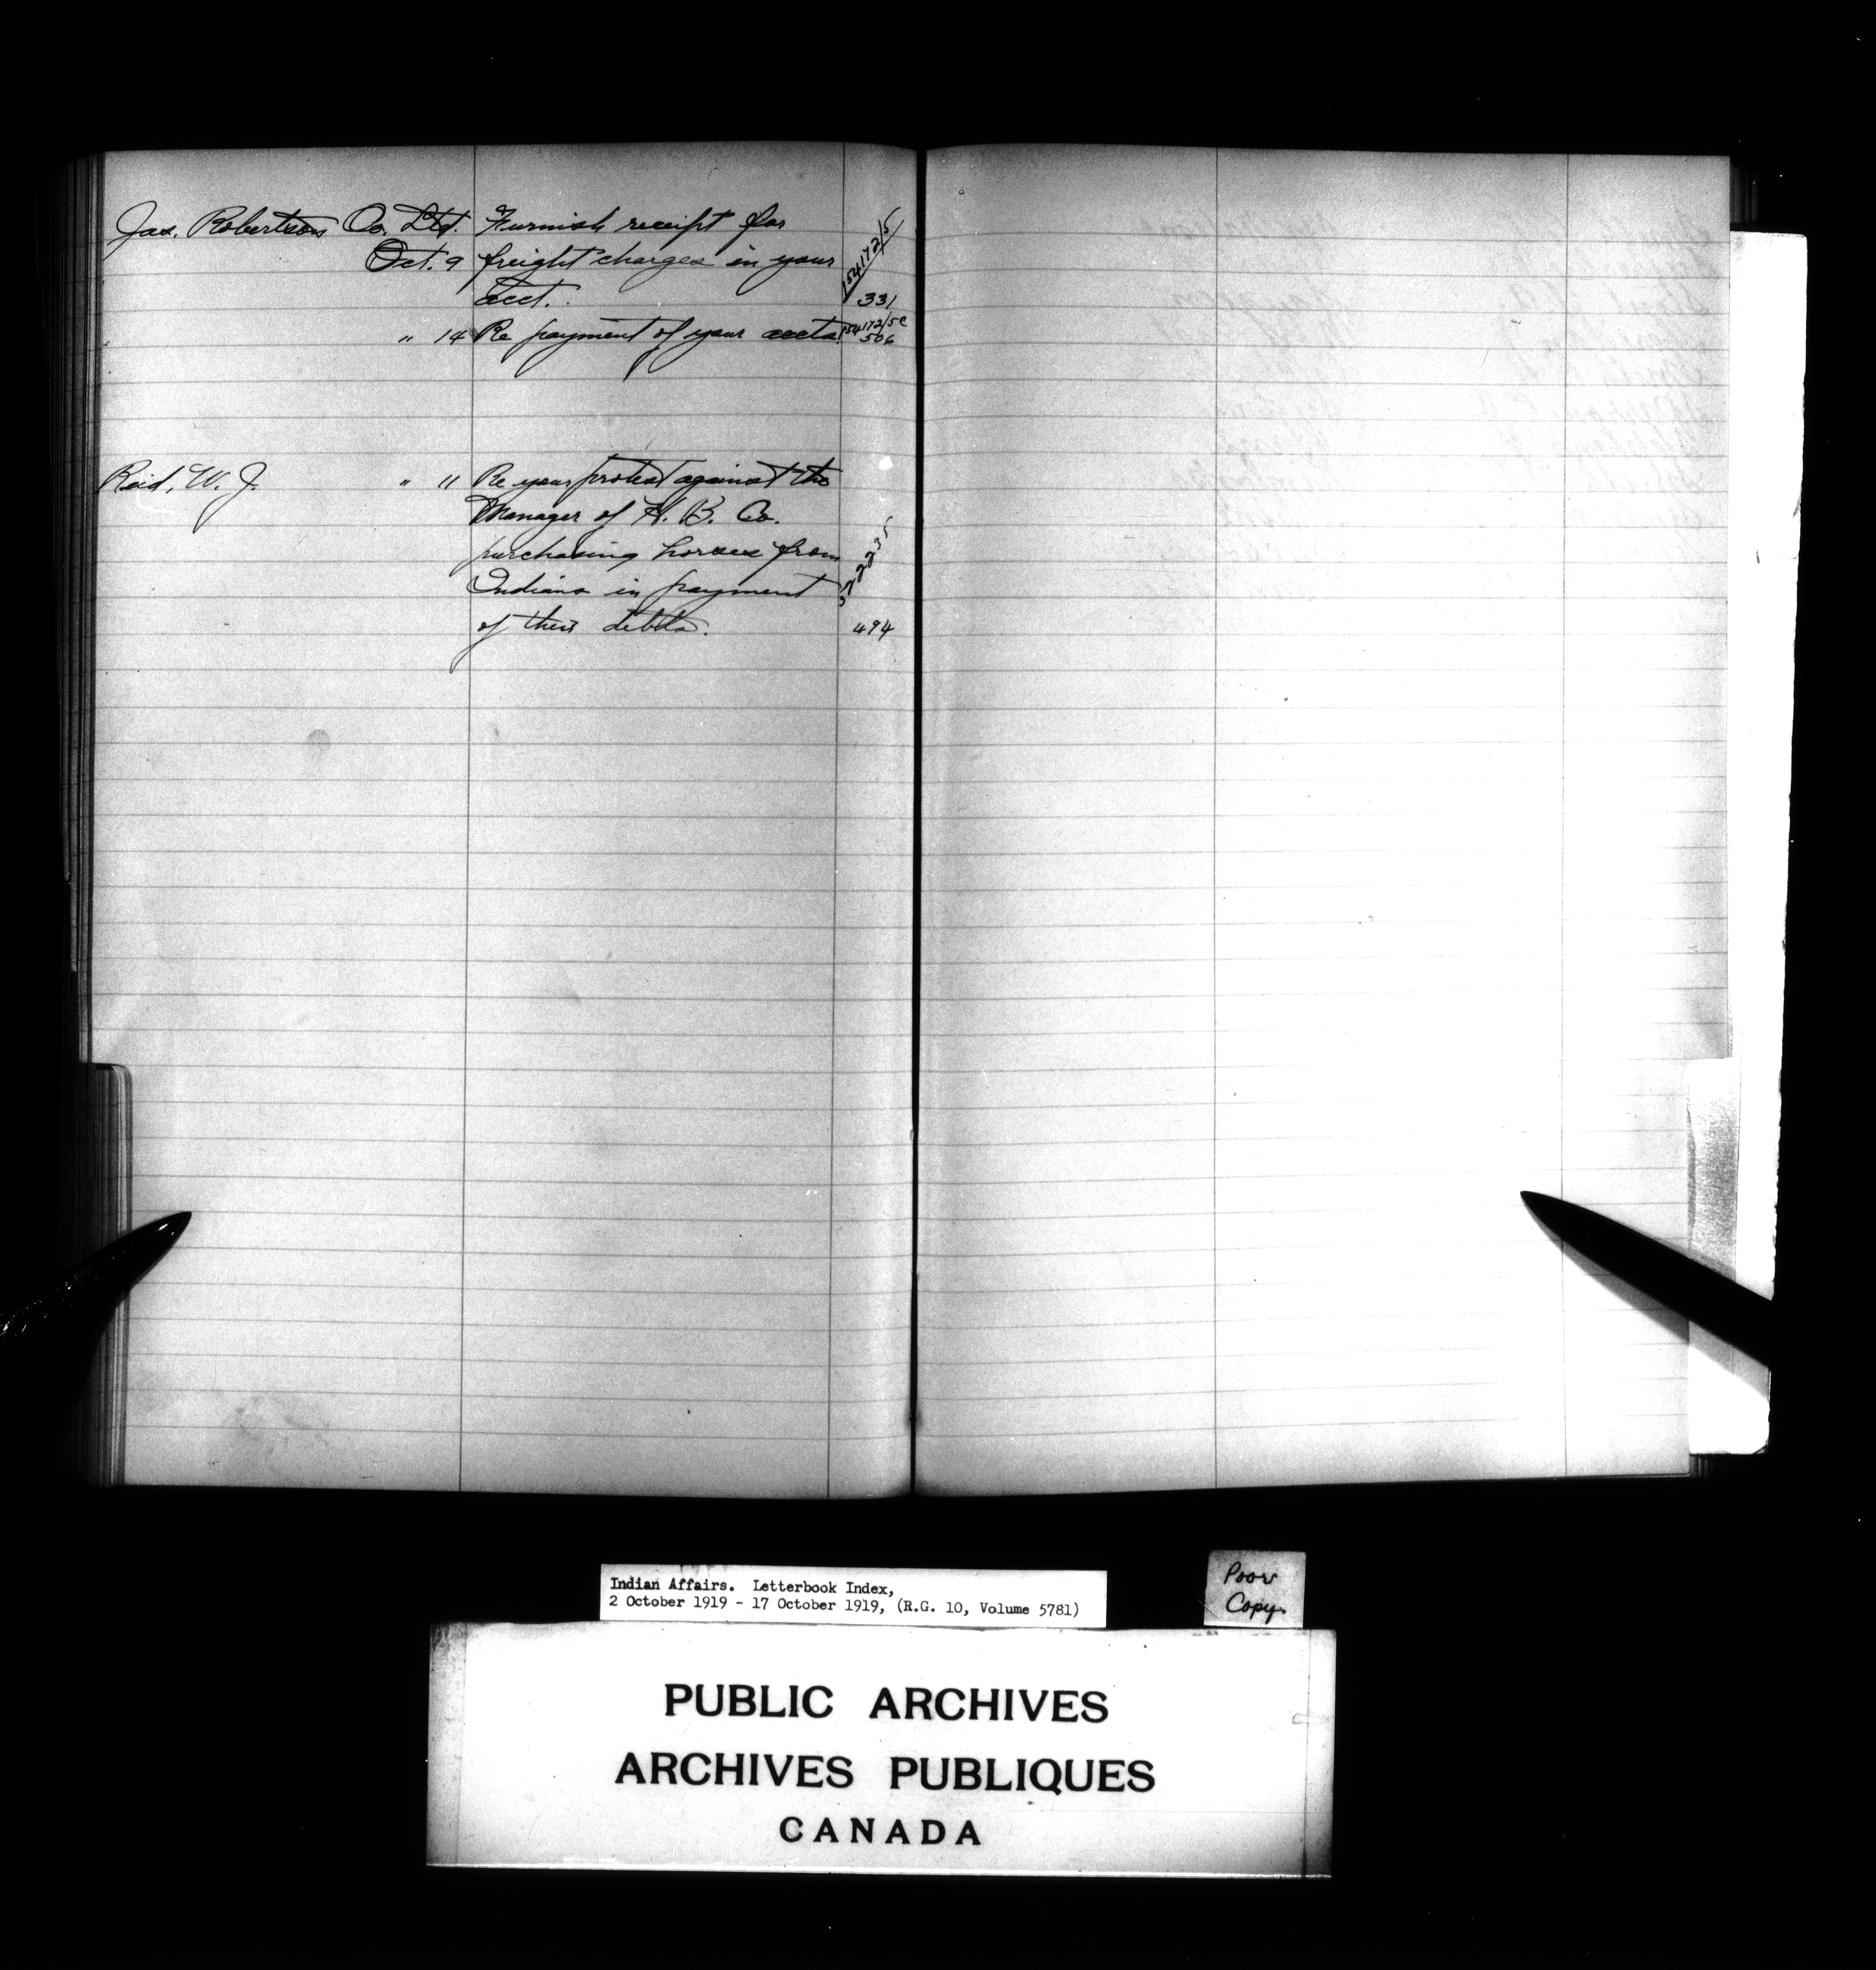 Jas. Robertson Co. Ltd. Furnish receipt for
Oct. 9 freight charges in your 154172/5
acct. 331
" 14 Re payment of your accts. 154172/5C
506
Reid, W. J. " 11 Re your protest against the
Manager of H. B. Co.
purchasing horses from
Indians in payment
of their debts. 494
Indian Affairs. Letterbook Index,
2 October 1919 - 17 October 1919, (R.G. 10, Volume 5781)
Poor
Copy.
PUBLIC ARCHIVES
ARCHIVES PUBLIQUES
CANADA